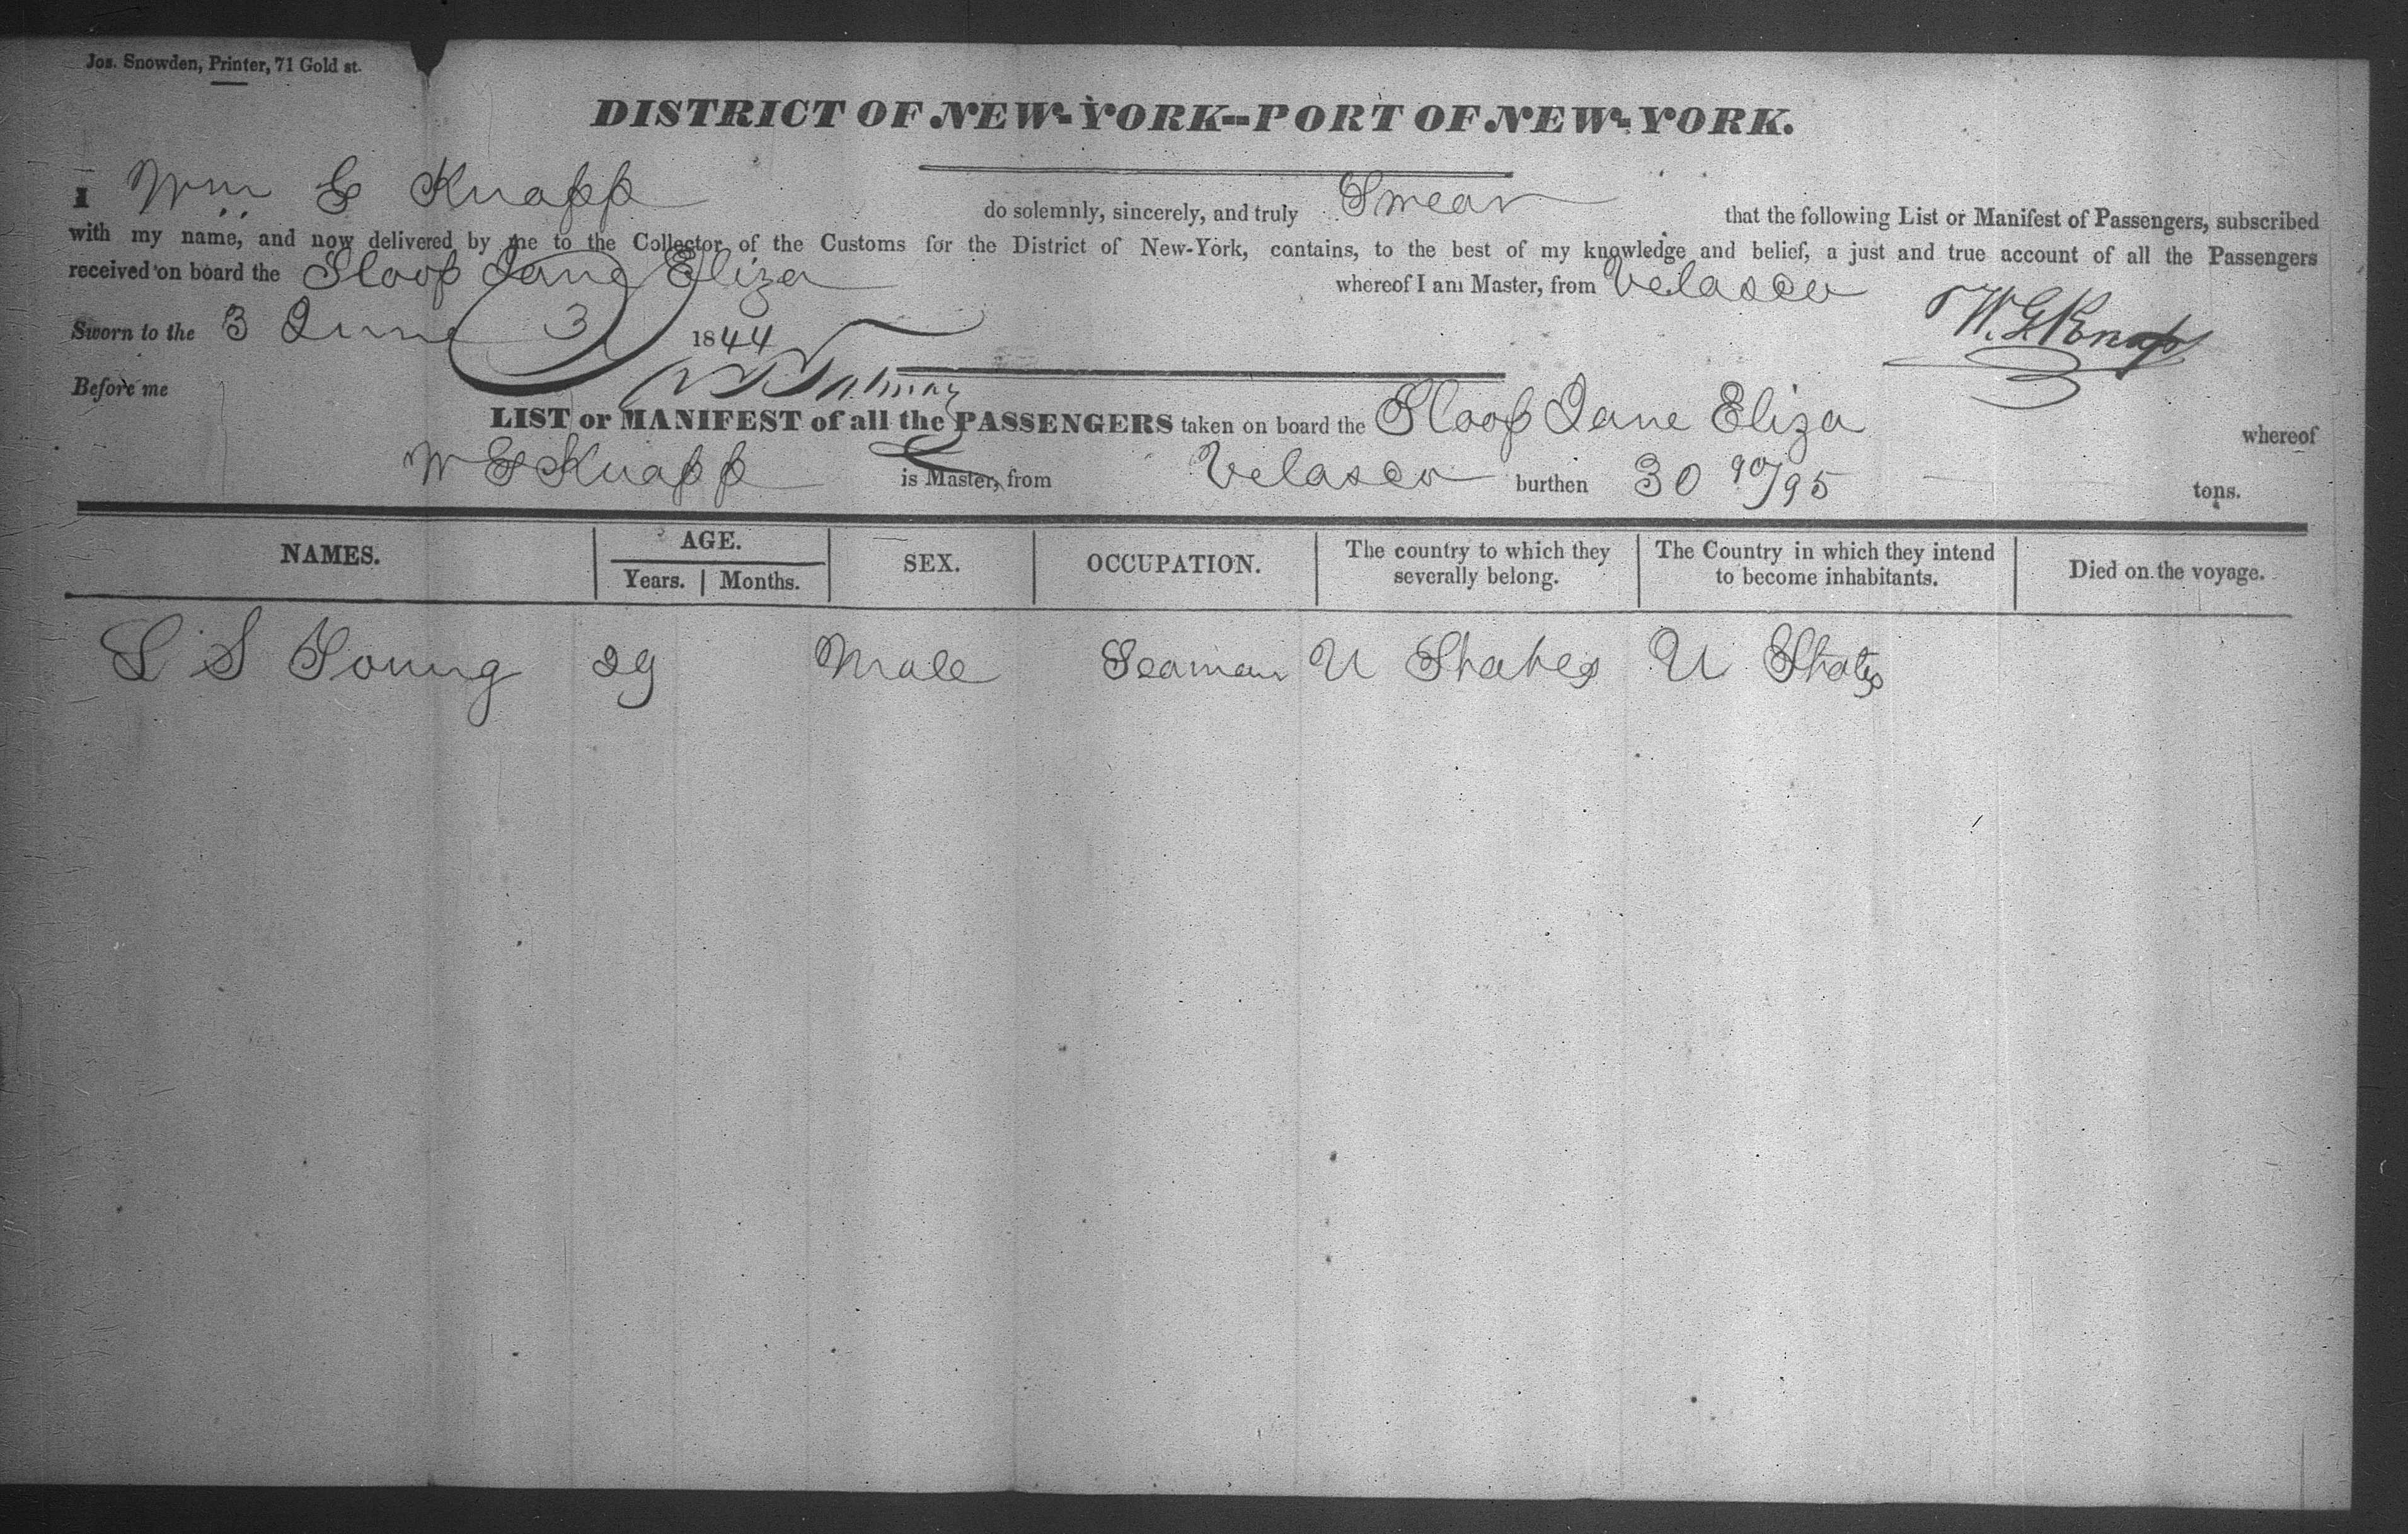 Jos. Snowden, Printer, 71 Gold st.
DISTRICT OF NEW-YORK--PORT OF NEW-YORK.
I Wm G Knapp do solemnly, sincerely, and truly Swear that the following List or Manifest of Passengers, subscribed
with my name, and now delivered by me to the Collector of the Customs for the District of New-York, contains, to the best of my knowledge and belief, a just and true account of all the Passengers
received on board the Sloop Jane Eliza whereof I am Master, from Velasco
Sworn to the 3 June 3 1844 W. G Knapp
Before me
LIST or MANIFEST of all the PASSENGERS taken on board the Sloop Jane Eliza whereof
W G Knapp is Master, from Velasco burthen 30 90/95 tons.
NAMES. AGE. Years. Months. SEX. OCCUPATION. The country to which they severally belong. The Country in which they intend to become inhabitants. Died on the voyage.
S S Young 29 Male Seaman U States U States